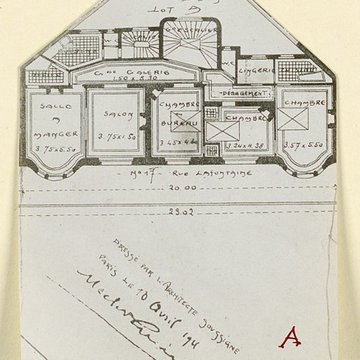 LOT A
Gde ESCALIER
Gde GALERIE
1.50 x 5.30
LINGERIE
DÉGAGEMENT
SALLE
A
MANGER
3.75 x 5.50
SALON
CHAMBRE
BUREAU
CHAMBRE
3.24 x 4.38
CHAMBRE
3.57 x 5.50
No 17 - RUE LAFONTAINE
20.00
29.02
DRESSÉ PAR L'ARCHITECTE SOUSSIGNÉ
PARIS LE 10 Avril 191
A